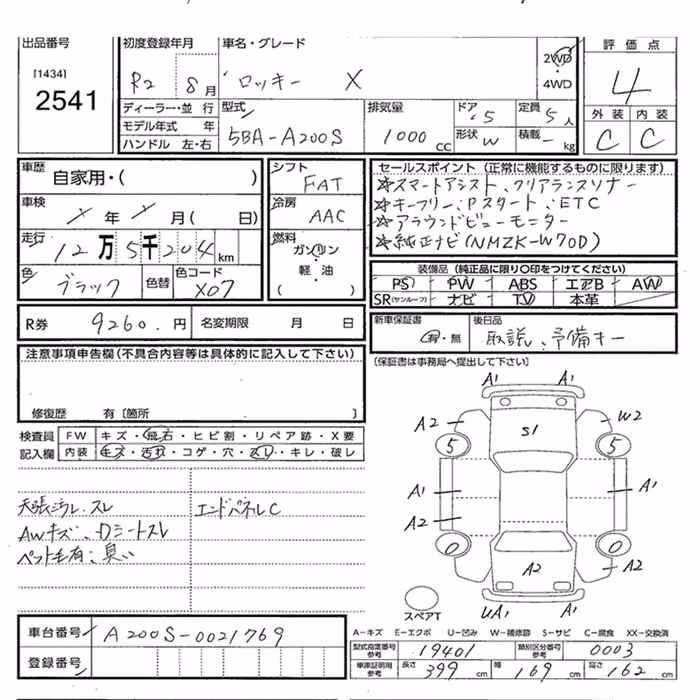 出品番号
[1434]
2541
初度登録年月
R2 8月
車名・グレード
ロッキー X
2WD
・
4WD
評価点
4
外装 内装
C C
ディーラー・並行
モデル年式 年
ハンドル 左・右
型式
5BA-A200S
排気量
1000 cc
ドア 5
形状 W
定員 5人
積載 - kg
車歴
自家用・( )
車検
X年X月( 日)
走行
12万5千204km
色
ブラック
色替
色コード
X07
シフト
FAT
冷房
AAC
燃料
ガソリン
軽・油
( )
セールスポイント (正常に機能するものに限ります)
☆スマートアシスト、クリアランスソナー
☆キーフリー、Pスタート、ETC
☆アラウンドビューモニター
☆純正ナビ(NMZK-W70D)
装備品 (純正品に限り○印をつけてください)
PS PW ABS エアB AW
SR(サンルーフ) ナビ TV 本革
R券 9260.円
名変期限 月 日
新車保証書
有・無
後日品
取説、予備キー
(保証書は事務局へ提出して下さい)
注意事項申告欄(不具合内容等は具体的に記入して下さい)
修復歴 有〔箇所 〕
検査員
記入欄
FW キズ・飛石・ヒビ割・リペア跡・X要
内装 キズ・汚れ・コゲ・穴・スレ・キレ・破レ
天張シミ.スレ
エンドパネルC
AWキズ、Dシートスレ
ペット毛有、臭い
A1 A1
A2 S1 W2
5 5
A1 A1
A2
0 0
A2 A2
UA1 A1
スペアT
A-キズ E-エクボ U-凹み W-補修跡 S-サビ C-腐食 XX-交換済
車台番号 A200S-0021769
登録番号
型式指定番号
参考
19401
類別区分番号
参考
0003
車庫証明用
参考
長さ 399 cm
幅 169 cm
高さ 162 cm